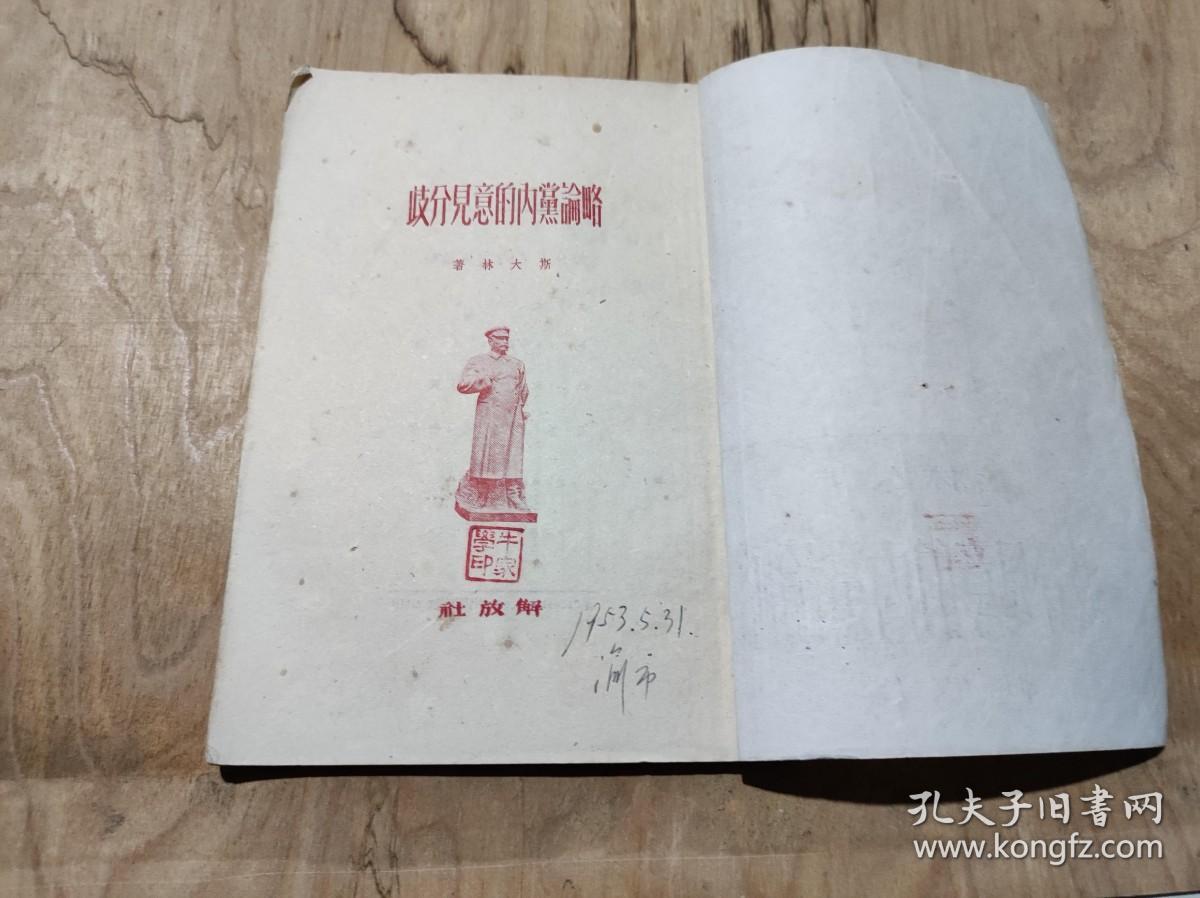 略論黨內的意見分歧
斯大林著
牛家
學印
解放社
1953.5.31.
孔夫子旧书网
www.kongfz.com